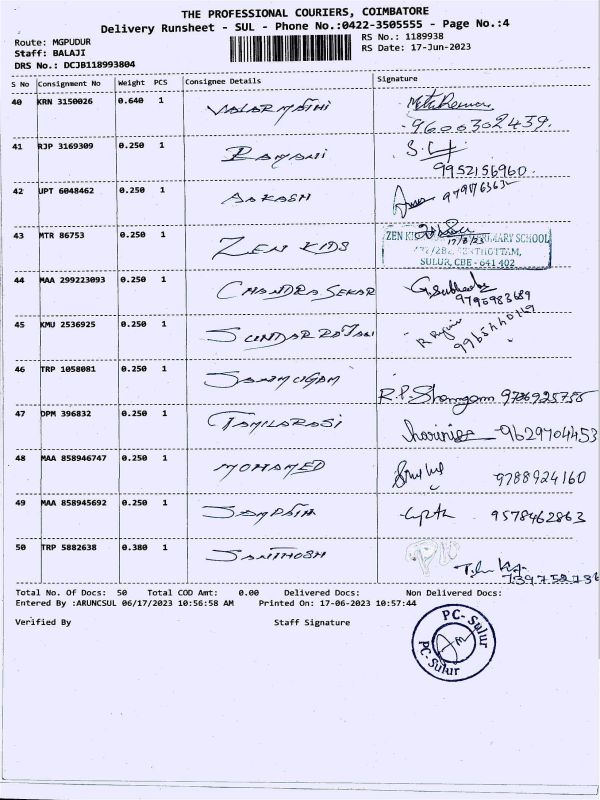 THE PROFESSIONAL COURIERS, COIMBATORE
Delivery Runsheet - SUL - Phone No.:0422-3505555 - Page No.:4
Route: MGPUDUR
RS No.: 1189938
Staff: BALAJI
RS Date: 17-Jun-2023
DRS No.: DCJB118993804
S No Consignment No Weight PCS Consignee Details Signature
40 KRN 3150026 0.640 1 VALARMATHI
9600302439.
41 RJP 3169309 0.250 1 RAMANI
9952156960.
42 UPT 6048462 0.250 1 AAKASH
43 MTR 86753 0.250 1 ZEN KIDS
17/6/23
SULUR, CBE - 641 402
44 MAA 299223093 0.250 1 CHANDRA SEKAR
9790983689
45 KMU 2536925 0.250 1 SUNDARRAJAN
46 TRP 1058081 0.250 1 SANMUGAM
R.P. Shanmgam
47 DPM 396832 0.250 1 TAMILARASI
9629704453
48 MAA 858946747 0.250 1 MOHAMED
9788924160
49 MAA 858945692 0.250 1 SAMPATH
9578462863
50 TRP 5882638 0.380 1 SANTHOSH
Total No. Of Docs: 50 Total COD Amt: 0.00 Delivered Docs: Non Delivered Docs:
Entered By :ARUNCSUL 06/17/2023 10:56:58 AM Printed On: 17-06-2023 10:57:44
Verified By Staff Signature
PC- Sulur
PC- Sulur